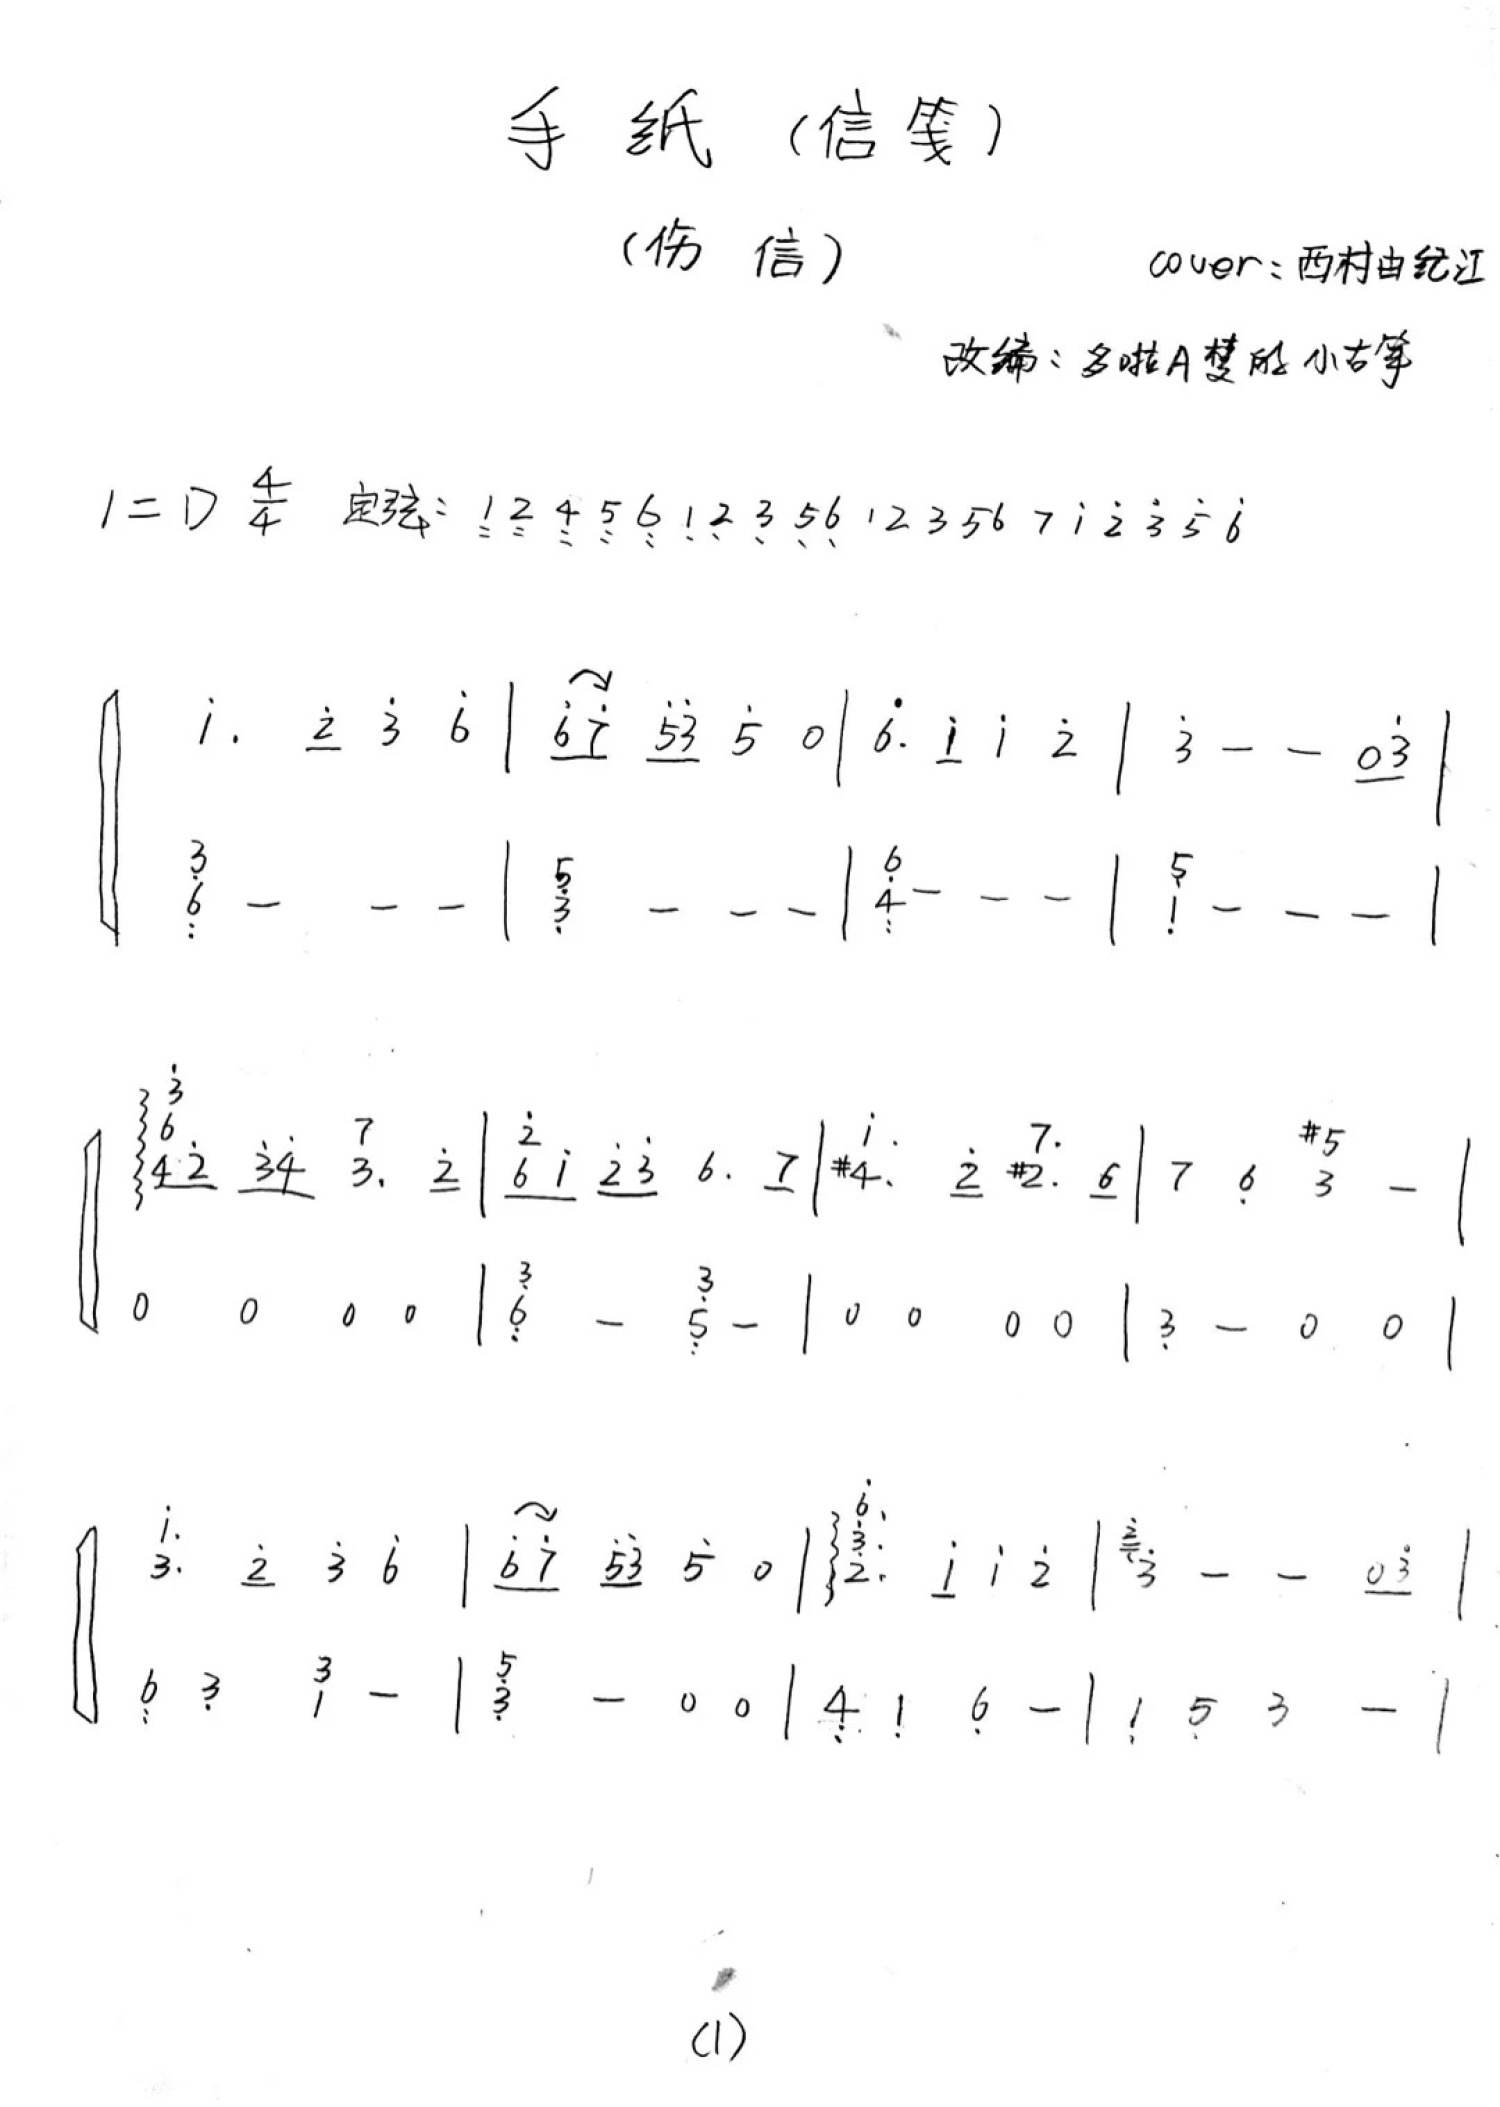 手纸（信笺）
（伤信）
cover：西村由纪江
改编：多啦A梦的小古筝
1=D 4/4 定弦：1̤̣ 2̤̣ 4̤ 5̤ 6̤ 1̣ 2̣ 3̣ 5̣ 6̣ 1 2 3 5 6 7 1̇ 2̇ 3̇ 5̇ 6̇
1̇. 2̇ 3̇ 6̇ | 6̇7̇ 5̇3̇ 5̇ 0 | 6̇. 1̇ 1̇ 2̇ | 3̇ - - 03̇ |
3
6̤ - - - | 5 3̣ - - - | 6 4̤ - - - | 5 1̣ - - - |
3̇
6 7 2̇ 1̇. 7. #5
42̇ 3̇4̇ 3. 2̇ | 61̇ 2̇3̇ 6. 7 | #4. 2̇ #2. 6 | 7 6̣ 3 - |
3 3
0 0 0 0 | 6̤ - 5̤ - | 0 0 0 0 | 3̣ - 0 0 |
1̇. 6̇. 3.
3. 2̇ 3̇ 6̇ | 6̇7̇ 5̇3̇ 5̇ 0 | 2. 1̇ 1̇ 2̇ | 3̇ - - 03̇ |
3 5
6̤ 3̣ 1 - | 3̣ - 0 0 | 4̤ 1̣ 6̣ - | 1̣ 5̣ 3 - |
(1)